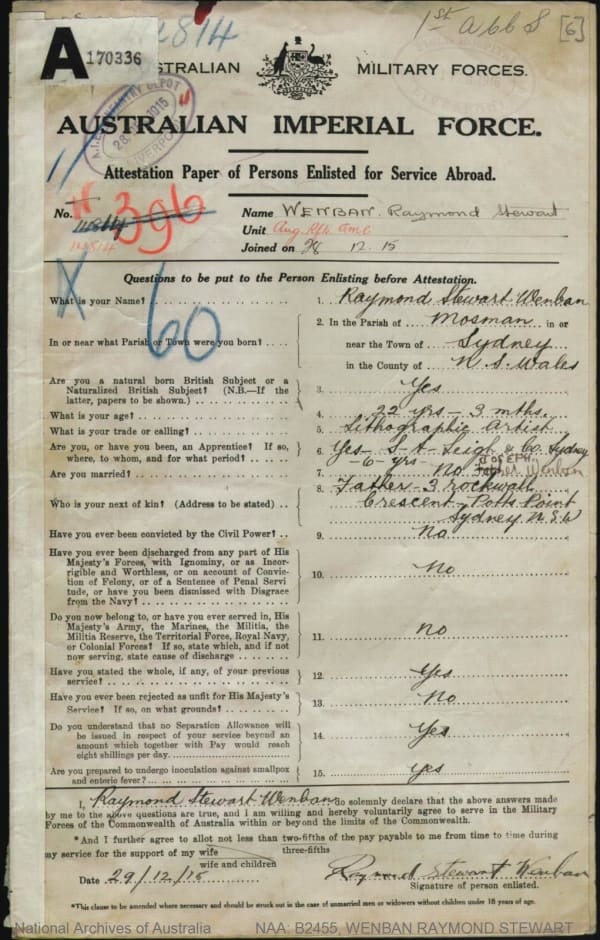 1st A b b S [6]
A 170336
AUSTRALIAN MILITARY FORCES.
28. 1915
LIVERPOOL
AUSTRALIAN IMPERIAL FORCE.
Attestation Paper of Persons Enlisted for Service Abroad.
No. 14814 396
14814
Name WENBAN. Raymond Stewart
Unit Aug. Rfts AMC
Joined on 28 12. 15
X 60
Questions to be put to the Person Enlisting before Attestation.
What is your Name? 1. Raymond Stewart Wenban
In or near what Parish or Town were you born? 2. In the Parish of Mosman in or
near the Town of Sydney
in the County of N. S. Wales
Are you a natural born British Subject or a
Naturalized British Subject? (N.B.—If the
latter, papers to be shown.) 3. Yes
What is your age? 4. 22 yrs – 3 mths.
What is your trade or calling? 5. Lithographic Artist
Are you, or have you been, an Apprentice? If so,
where, to whom, and for what period? 6. Yes – S. T. Leigh & Co. Sydney
– 6 yrs –
Are you married? 7. No
Who is your next of kin? (Address to be stated) 8. Father – 3 Rockwall
Crescent – Potts Point
Sydney N.S.W
Father Wenban
Have you ever been convicted by the Civil Power? 9. No
Have you ever been discharged from any part of His
Majesty's Forces, with Ignominy, or as Incor-
rigible and Worthless, or on account of Convic-
tion of Felony, or of a Sentence of Penal Servi
tude, or have you been dismissed with Disgrace
from the Navy? 10. No
Do you now belong to, or have you ever served in, His
Majesty's Army, the Marines, the Militia, the
Militia Reserve, the Territorial Force, Royal Navy,
or Colonial Forces? If so, state which, and if not
now serving, state cause of discharge 11. No
Have you stated the whole, if any, of your previous
service? 12. Yes
Have you ever been rejected as unfit for His Majesty's
Service? If so, on what grounds? 13. No
Do you understand that no Separation Allowance will
be issued in respect of your service beyond an
amount which together with Pay would reach
eight shillings per day. 14. Yes
Are you prepared to undergo inoculation against smallpox
and enteric fever? 15. Yes
I, Raymond Stewart Wenban do solemnly declare that the above answers made
by me to the above questions are true, and I am willing and hereby voluntarily agree to serve in the Military
Forces of the Commonwealth of Australia within or beyond the limits of the Commonwealth.
*And I further agree to allot not less than two-fifths of the pay payable to me from time to time during
three-fifths
my service for the support of my wife
wife and children
Date 29/12/15 Raymond Stewart Wenban
Signature of person enlisted.
*This clause to be amended where necessary and should be struck out in the case of unmarried men or widowers without children under 18 years of age.
National Archives of Australia NAA: B2455, WENBAN RAYMOND STEWART